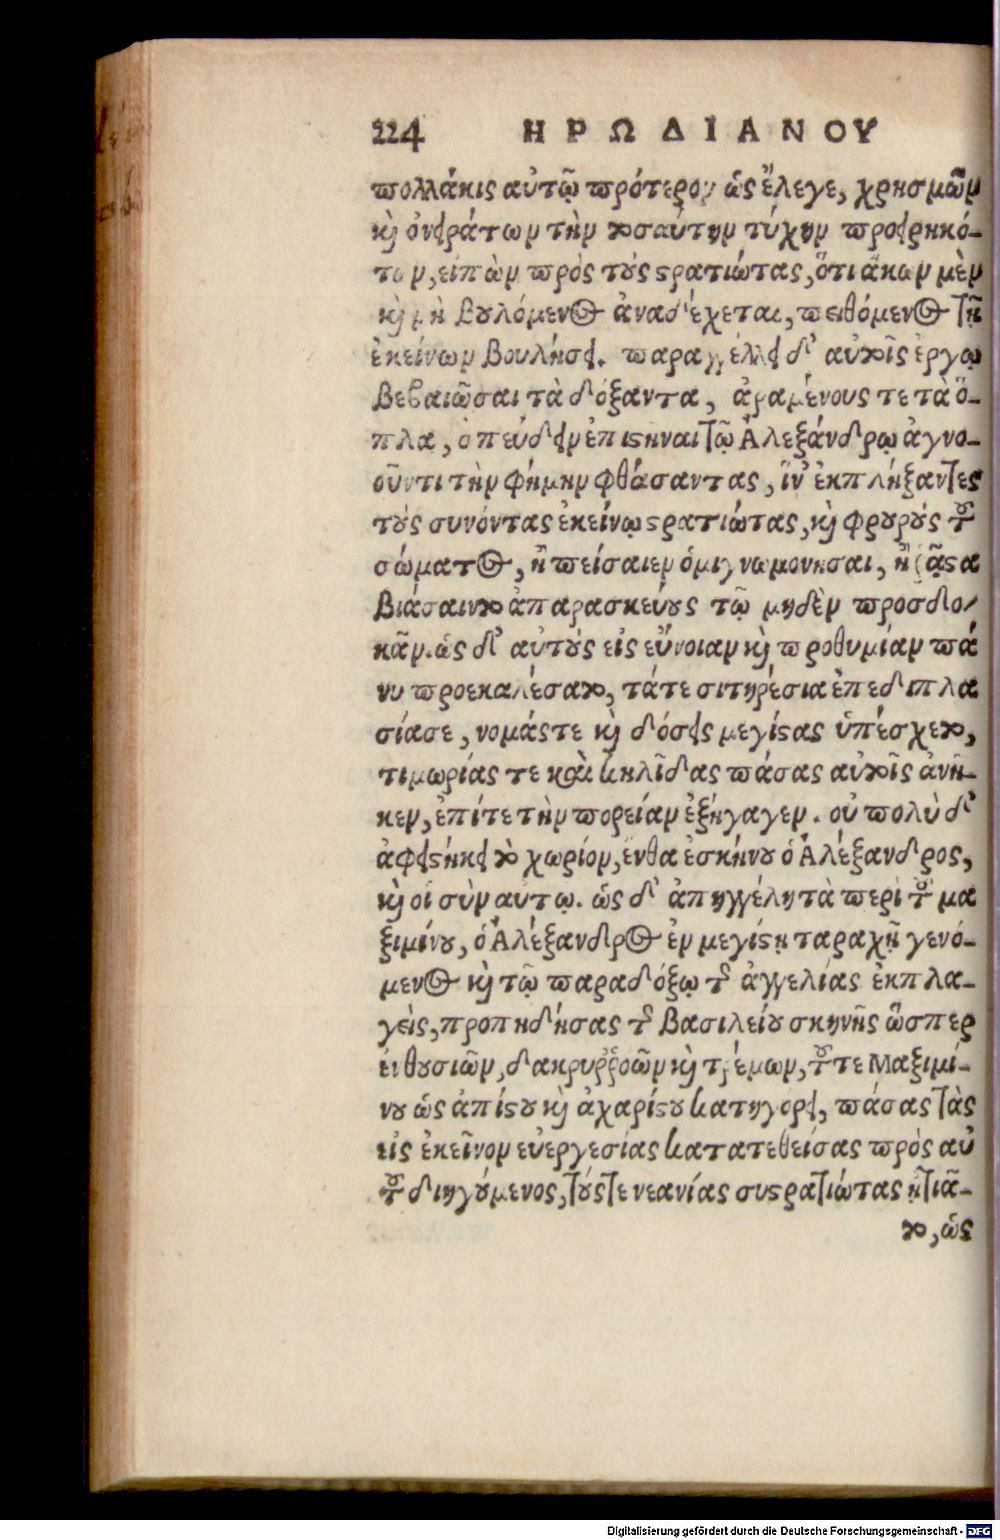 224 ΗΡΩΔΙΑΝΟΥ
πολλάκις αὐτῷ πρότερον ὡς ἔλεγε, χρησμῶν
καὶ ὀνειράτων τὴν τοσαύτην τύχην προειρηκό-
των, εἰπὼν πρὸς τοὺς στρατιώτας, ὅτι ἄκων μὲν
καὶ μὴ βουλόμενος ἀναδέχεται, πειθόμενος τῇ
ἐκείνων βουλήσει. παραγγέλλει δ' αὐτοῖς ἔργῳ
βεβαιῶσαι τὰ δόξαντα, ἀραμένους τε τὰ ὅ-
πλα, σπεύδειν ἐπιστῆναι τῷ Ἀλεξάνδρῳ ἀγνο-
οῦντι τὴν φήμην φθάσαντας, ἵν' ἐκπλήξαντες
τοὺς συνόντας ἐκείνῳ στρατιώτας, καὶ φρουροὺς τοῦ
σώματος, ἢ πείσαιεν ὁμογνωμονῆσαι, ἢ ῥᾷστα
βιάσαιντο ἀπαρασκεύους τῷ μηδὲν προσδο-
κᾶν. ὡς δ' αὐτοὺς εἰς εὔνοιαν καὶ προθυμίαν πά
νυ προεκαλέσατο, τά τε σιτηρέσια ἐπεδιπλα
σίασε, νομάς τε καὶ δόσεις μεγίστας ὑπέσχετο,
τιμωρίας τε καὶ κηλῖδας πάσας αὐτοῖς ἀνῆ-
κεν, ἐπί τε τὴν πορείαν ἐξήγαγεν. οὐ πολὺ δ'
ἀφειστήκει τὸ χωρίον, ἔνθα ἐσκήνου ὁ Ἀλέξανδρος,
καὶ οἱ σὺν αὐτῷ. ὡς δ' ἀπηγγέλη τὰ περὶ τοῦ μα
ξιμίνου, ὁ Ἀλέξανδρος ἐν μεγίστῃ ταραχῇ γενό-
μενος καὶ τῷ παραδόξῳ τῆς ἀγγελίας ἐκπλα-
γεὶς, προπηδήσας τῆς βασιλείου σκηνῆς ὥσπερ
ἐνθουσιῶν, δακρυῤῥοῶν καὶ τρέμων, τοῦ τε Μαξιμί-
νου ὡς ἀπίστου καὶ ἀχαρίστου κατηγορεῖ, πάσας τὰς
εἰς ἐκεῖνον εὐεργεσίας κατατεθείσας πρὸς αὐ
τοῦ διηγούμενος, τούς τε νεανίας συστρατιώτας ᾐτιᾶ-
το, ὡς
Digitalisierung gefördert durch die Deutsche Forschungsgemeinschaft - DFG